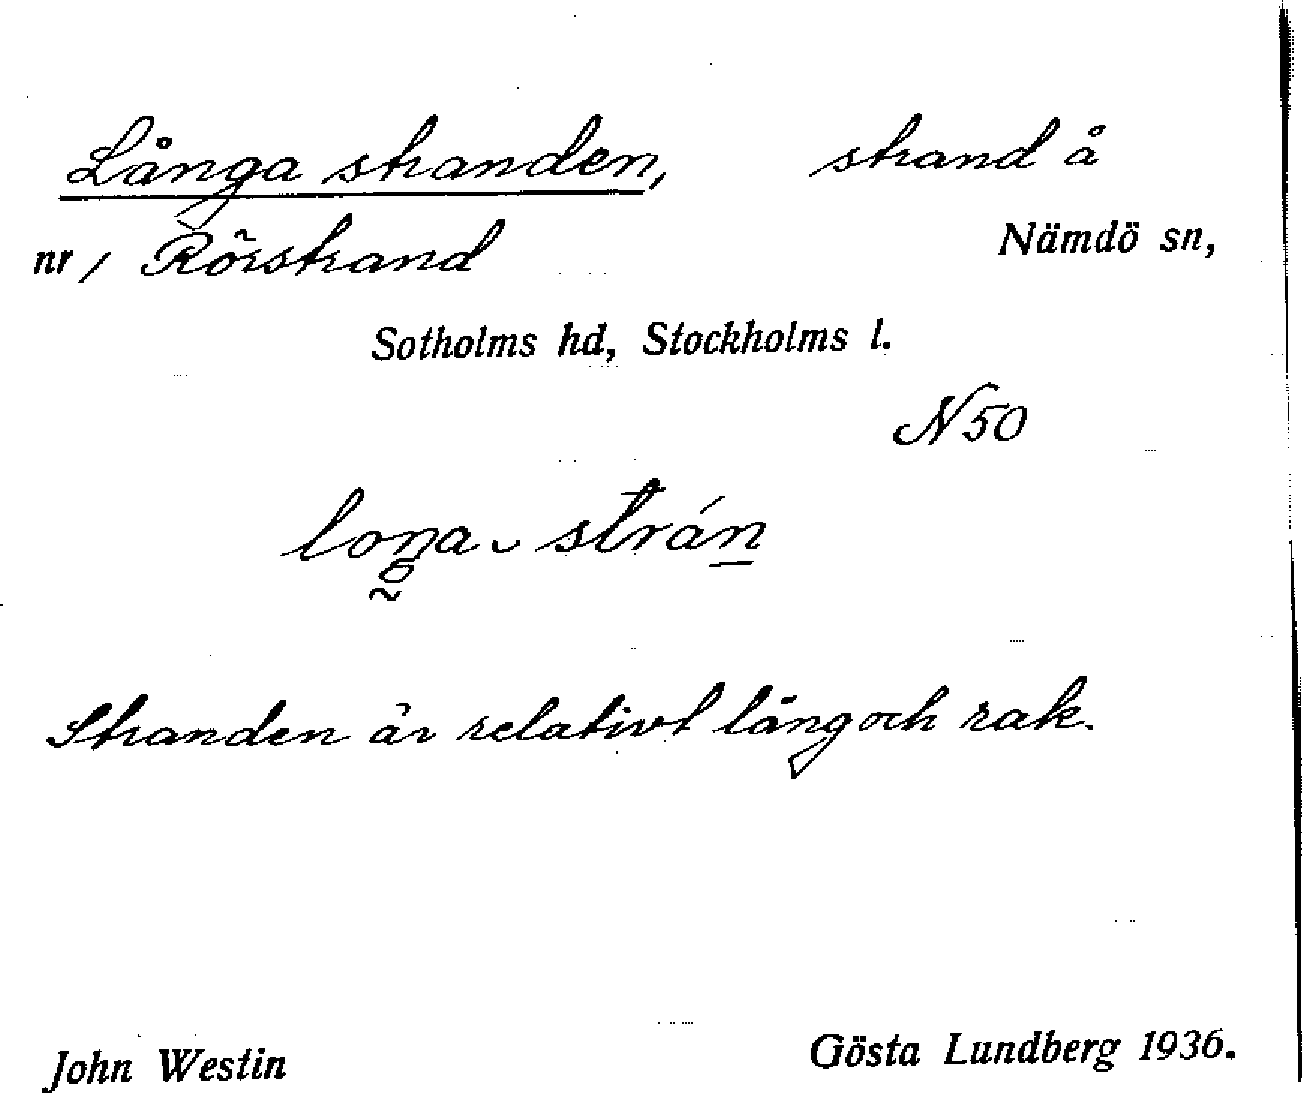 Långa stranden, strand å
nr 1 Rörstrand Nämdö sn,
Sotholms hd, Stockholms l.
N 50
loŋa ‿ strán
Stranden är relativt lång och rak.
John Westin Gösta Lundberg 1936.